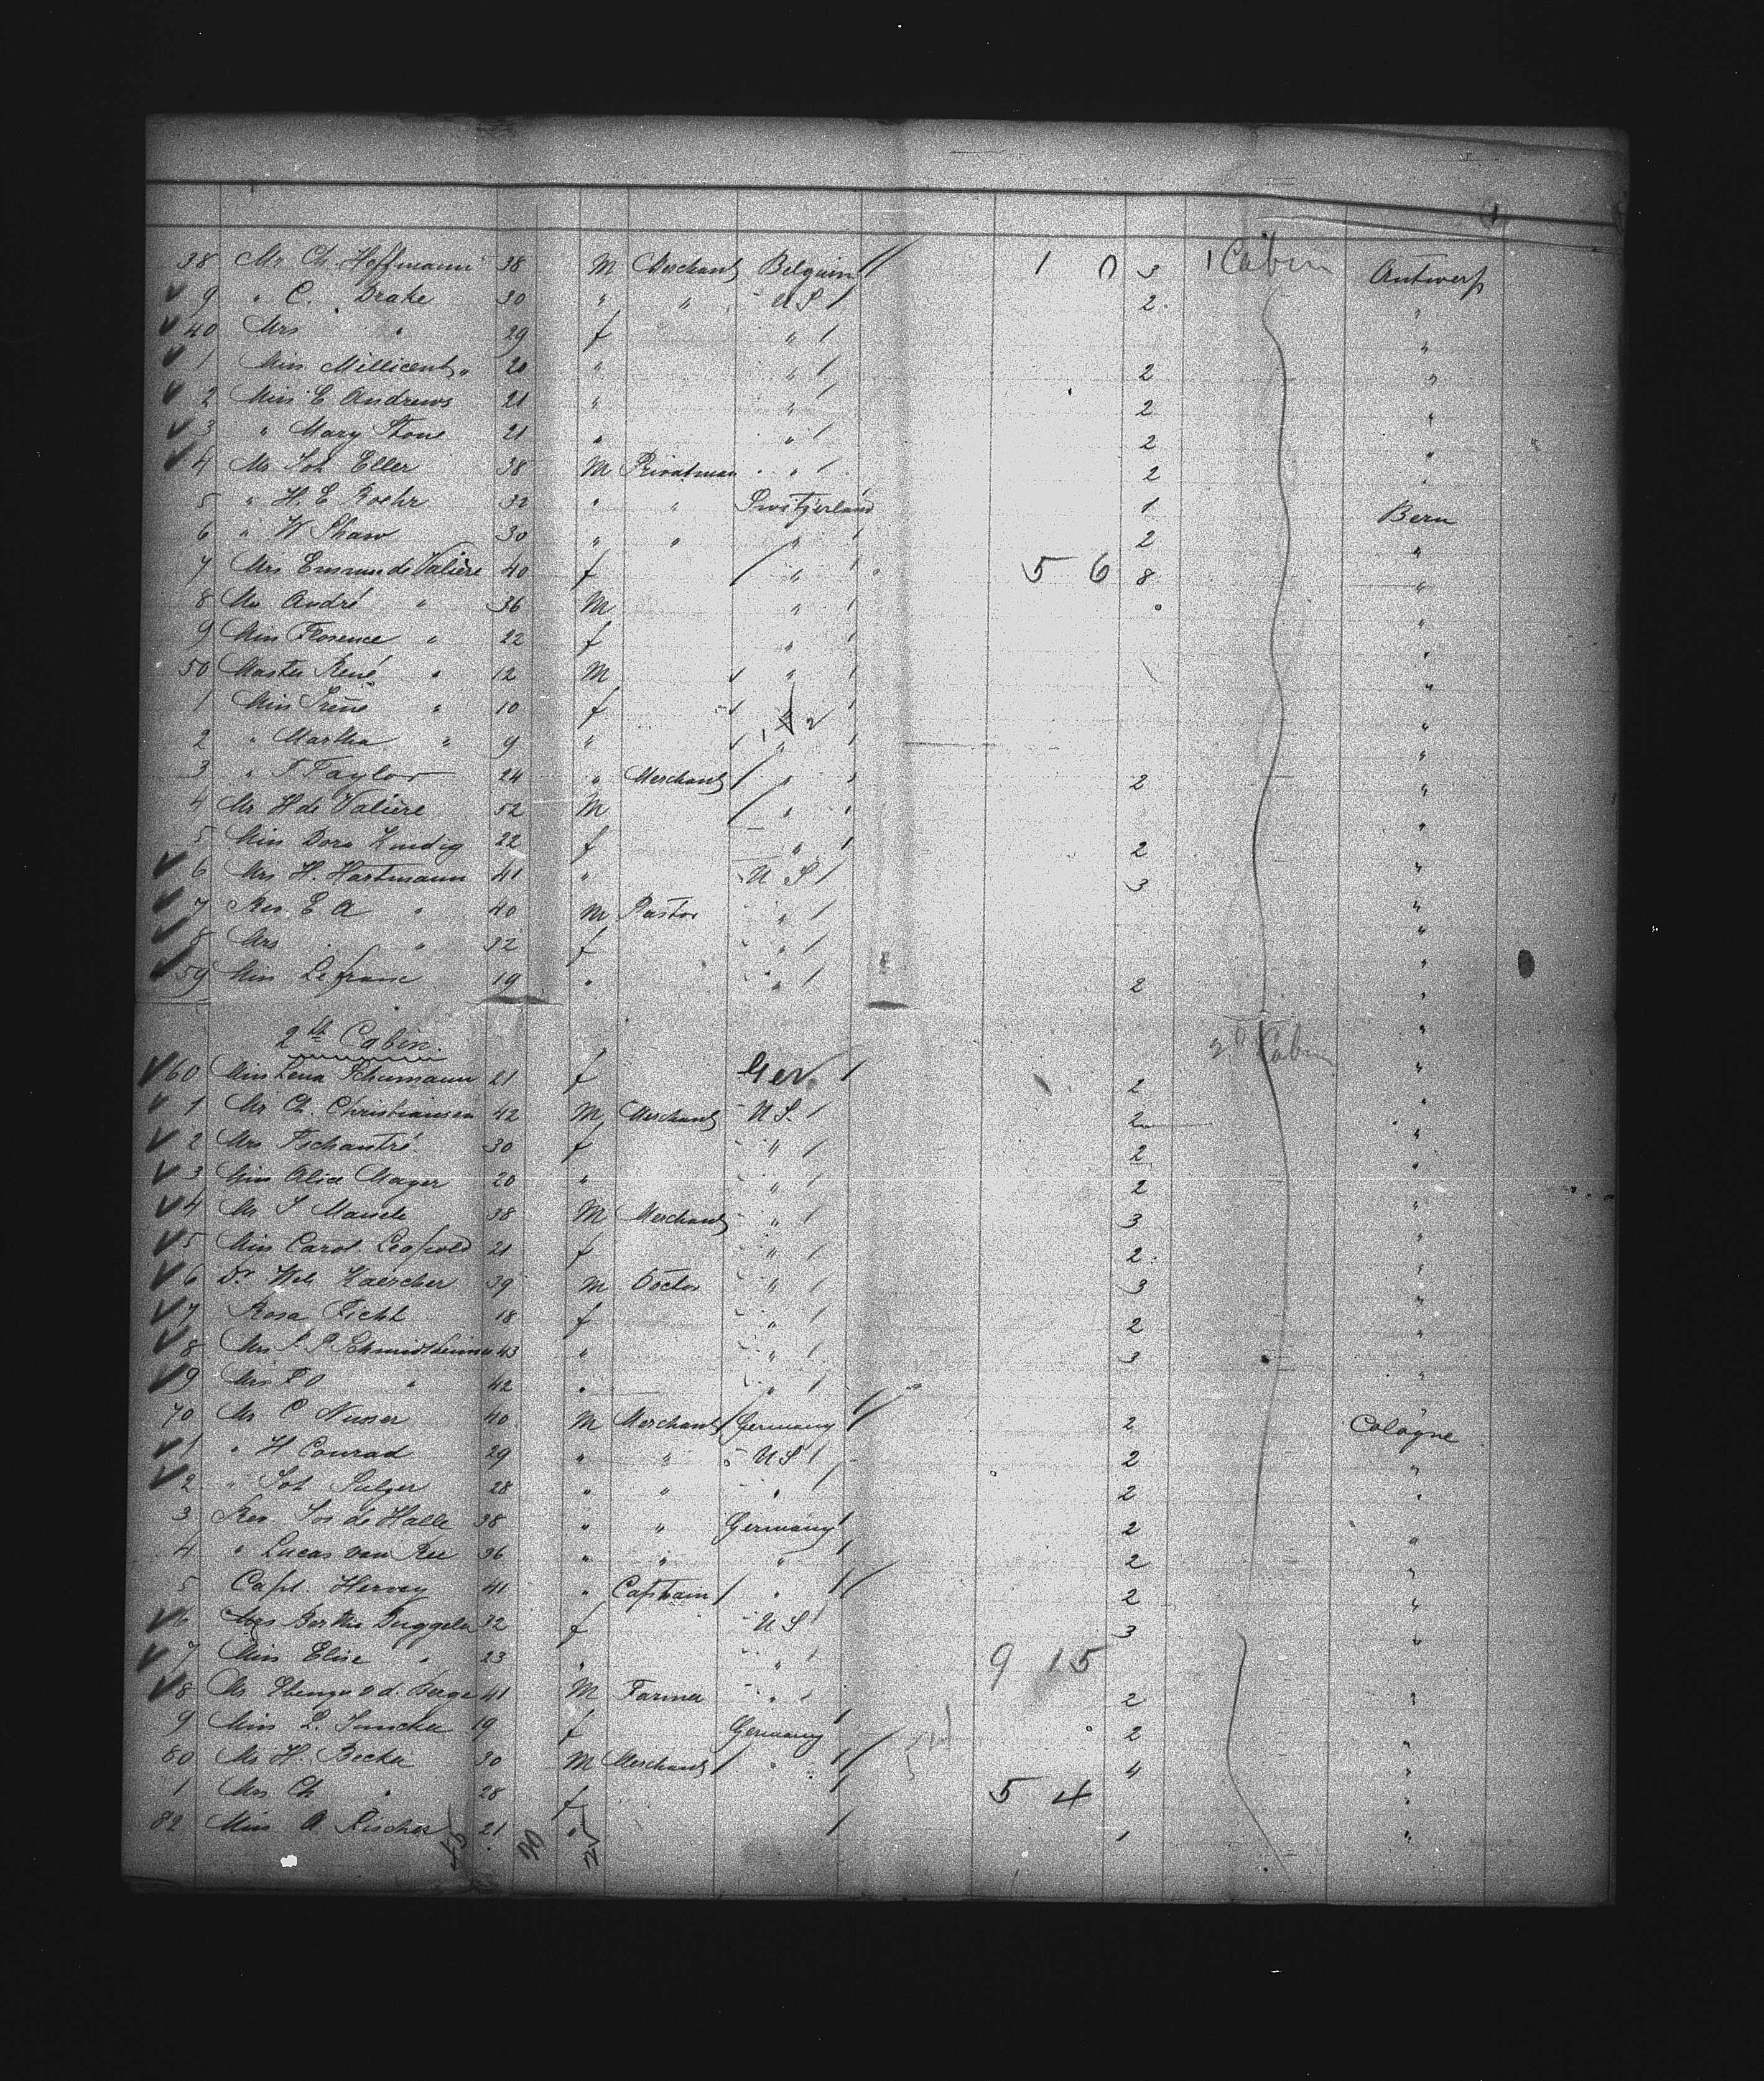 38 Mr Ch. Hoffmann 38 M Merchant Belgium 1 0 3 1 Cabin Antwerp
9 " C. Drake 30 " " U S 2 "
40 Mrs " 29 f " "
1 Miss Millicent " 20 " " 2 "
2 Miss E Andrews 21 " " 2 "
3 " Mary Stone 21 " " 2 "
4 Mr Joh Eller 38 M Privatman " 2 "
5 " H. E Roehr 32 " " Switzerland 1 Bern
6 " W Shaw 30 " " " 2 "
7 Mrs Emma de Valière 40 f " 5 6 8 "
8 Mr André " 36 M " "
9 Miss Florence " 22 f " "
50 Master René " 12 M " "
1 Miss Irène " 10 f " "
2 " Martha " 9 " " "
3 " T Taylor 24 " Merchant " 2 "
4 Mr H de Valière 52 M " "
5 Miss Dora Hindig 22 f " 2 "
6 Mrs H. Hartmann 41 " U S 3 "
7 Rev. E A " 40 M Pastor " "
8 Mrs " 32 f " "
59 Miss Lefranc 19 " " 2 "
2th Cabin. 2d Cabin
60 Miss Lena Schumann 21 f Ger. 2 "
1 Mr Ch. Christiansen 42 M Merchant U S. 2 "
2 Mrs Tschantré 30 f " 2 "
3 Miss Alice Mayer 20 " " 2 "
4 Mr S 38 M Merchant " 3 "
5 Miss Carol. Leopold 21 f " 2 "
6 Dr Wel Kaercher 39 M Doctor " 3 "
7 Rosa Fichl 18 f " 2 "
8 Mrs 43 " " 3 "
9 Miss " 42 " " "
70 Mr C Nusser 40 M Merchant Germany 2 Cologne
1 " H Conrad 29 " " U S 2 "
2 " Joh Selger 28 " " " 2 "
3 Rev. Jos de Halle 38 " " Germany 2 "
4 " Lucas van Ree 36 " " " 2 "
5 Capt. Hervey 41 " Captain " 2 "
6 Mrs Bertha Duggeli 32 f U S 3 "
7 Miss Elise " 23 " " 9 15
8 Mr v d. Berge 41 M Farmer " 2 "
9 Miss L. 19 f Germany 2 "
80 Mr H. Becker 30 M Merchant " 4 "
1 Mrs Ch " 28 f 5 4 "
82 Miss A. Fischer 21 " 1 "